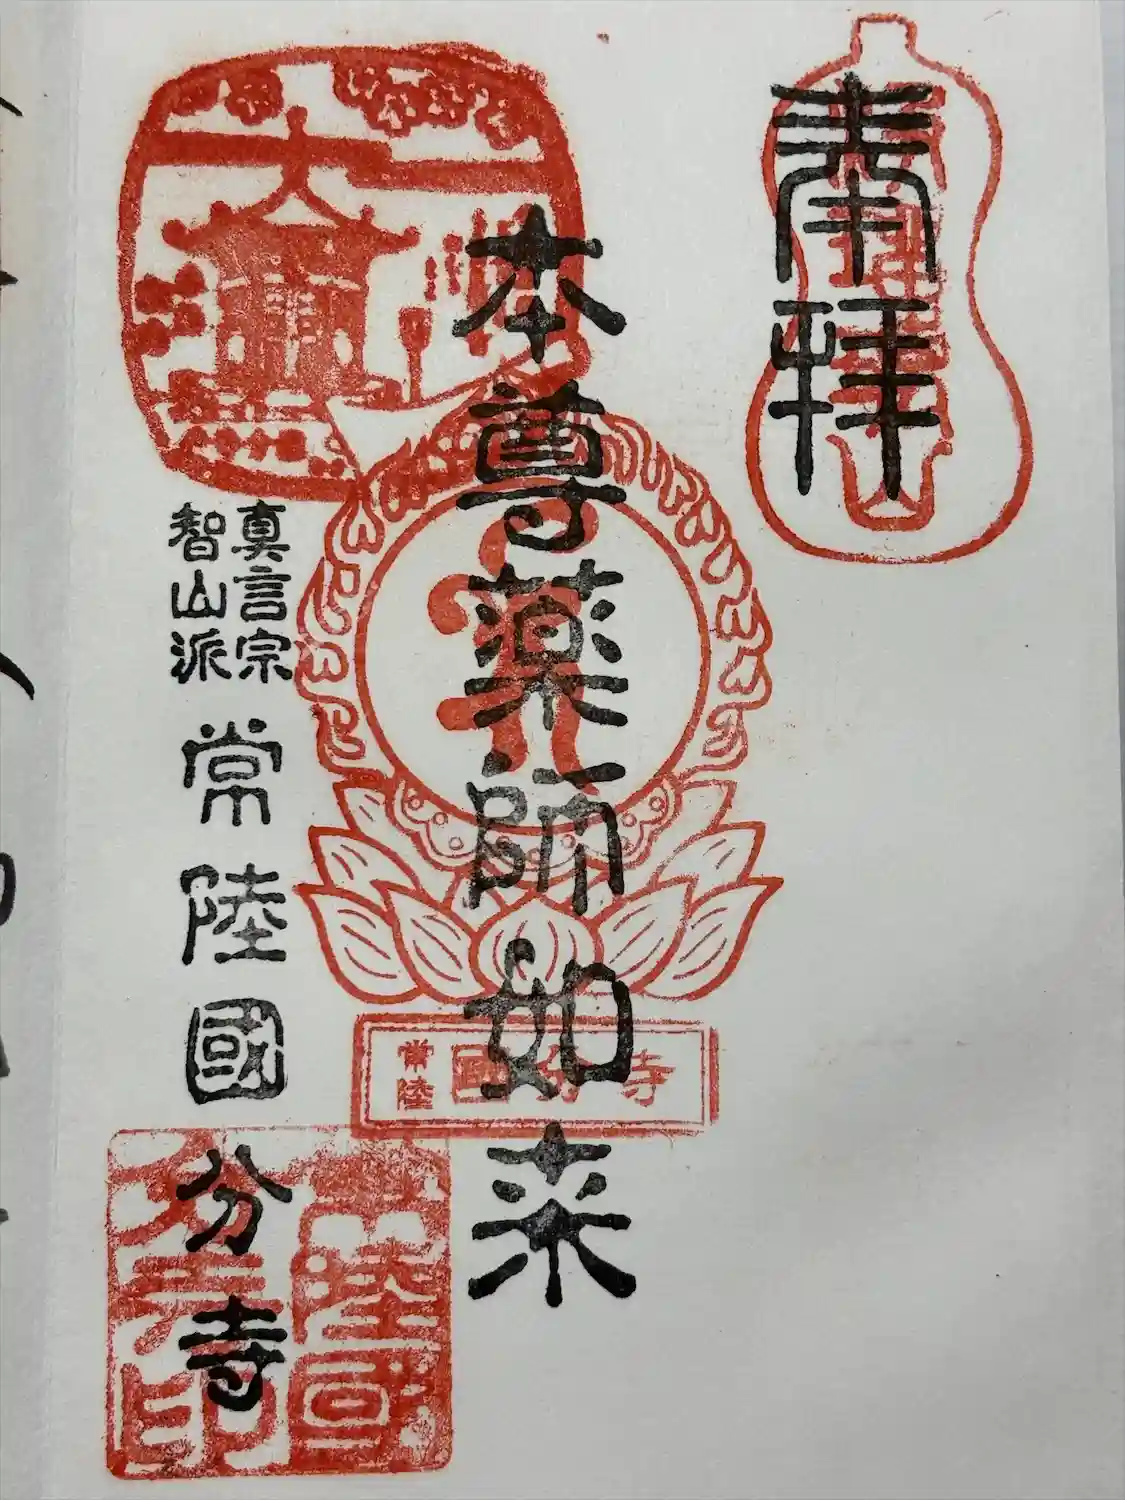 奉拝
本尊薬師如来
真言宗
智山派
常陸國分寺
常陸
國分寺
常陸國
分寺印